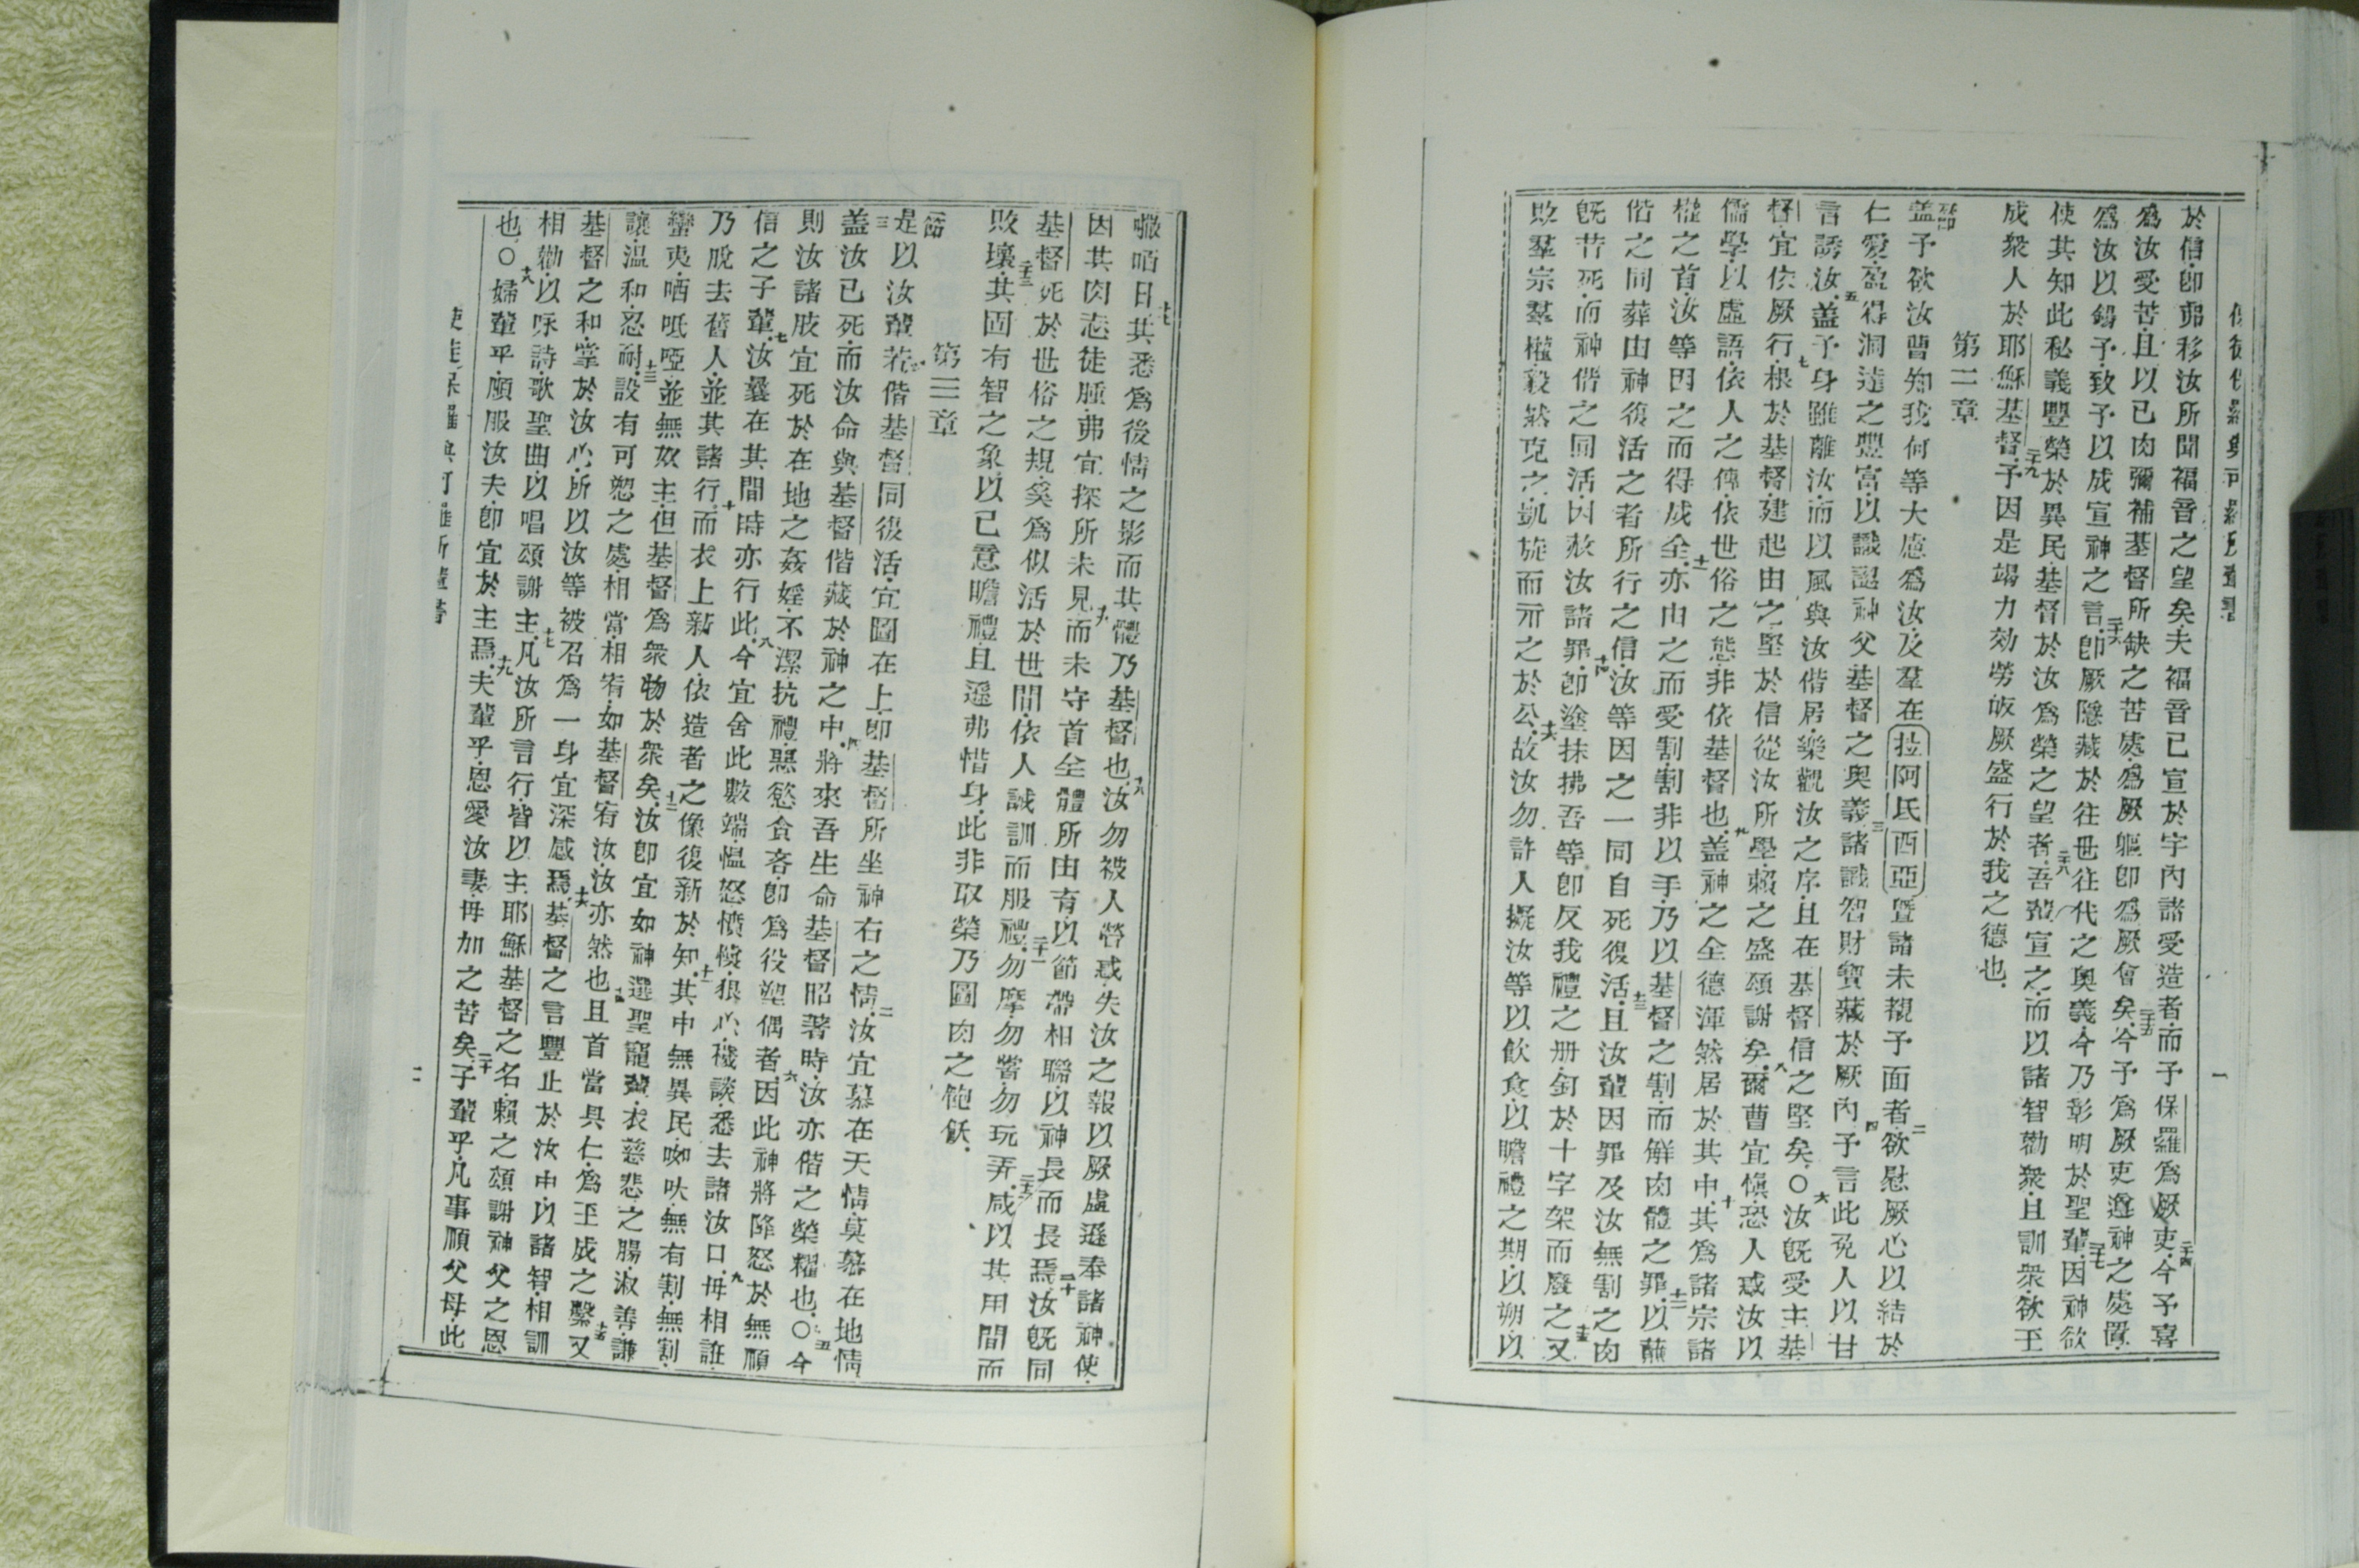 於信卽弗移汝所聞福音之望矣夫福音已宣於宇內諸受造者而予保羅爲厥吏二十四今予喜
爲汝愛苦且以己肉彌補基督所缺之苦處爲厥軀卽爲厥會矣二十五今予爲厥吏遵神之處置
爲汝以錫予致予以成宣神之言二十六卽厥隱藏於往世往代之奧義今乃彰明於聖輩二十七因神欲
使其知此秘義豐榮於異民基督於汝爲榮之望者二十八吾輩宣之而以諸智勸衆且訓衆欲玉
成衆人於耶穌基督二十九予因是竭力効勞依厥盛行於我之德也
第二章
節
蓋予欲汝曹知我何等大慮爲汝及羣在拉阿氏西亞曁諸未覩予面者二欲慰厥心以結於
仁愛盈得洞達之豐富以識認神父基督之奧義三諸識智財寶藏於厥內四予言此免人以甘
言誘汝五蓋予身雖離汝而以風與汝偕居樂觀汝之序且在基督信之堅矣〇六汝旣受主基
督宜依厥行七根於基督建起由之堅於信從汝所學賴之盛頌謝矣八爾曹宜愼恐人惑汝以
儒學以虛語依人之傳依世俗之態非依基督也九蓋神之全德渾然居於其中十其爲諸宗諸
權之首汝等因之而得成全十一亦由之而受割割非以手乃以基督之割而解肉體之罪十二以蘸
偕之同葬由神復活之者所行之信汝等因之一同自死復活十三且汝輩因罪及汝無割之肉
旣昔死而神偕之同活因赦汝諸罪十四卽塗抹拂吾等卽反我禮之册釘於十字架而廢之十五又
敗羣宗羣權毅然克之凱旋而示之於公十六故汝勿許人擬汝等以飲食以瞻禮之期以朔以
𠻳哂日十七其悉爲後情之影而其體乃基督也十八汝勿被人營惑失汝之報以厥虛遜奉諸神使
因其肉志徒腫弗宜探所未見十九而未守首全體所由育以節帶相聯以神長而長焉二十汝旣同
基督死於世俗之規奚爲似活於世間依人誡訓而服禮二十一勿摩勿嘗勿玩弄二十二咸以其用間而
敗壞二十三其固有智之象以己意瞻禮且遜弗惜身此非取榮乃圖肉之飽飫
第三章
節
是以汝輩若偕基督同復活宜圖在上卽基督所坐神右之情二汝宜慕在天情莫慕在地情
三蓋汝已死而汝命與基督偕藏於神之中四將來吾生命基督昭著時汝亦偕之榮耀也〇五今
則汝諸肢宜死於在地之姦婬不潔抗禮惡慾貪吝卽爲役塑偶者六因此神將降怒於無順
信之子輩七汝曩在其間時亦行此八今宜舍此數端愠怒憤愼狠心穢談悉去諸汝口九毋相誑
乃脫去舊人並其諸行十而衣上新人依造者之像復新於知十一其中無異民㗎吠無有割無割
蠻夷哂呧啞並無奴主但基督爲衆物於衆矣十二汝卽宜如神選聖寵輩衣慈悲之腸淑善謙
讓温和忍耐十三設有可恕之處相當相宥如基督宥汝汝亦然也十四且首當具仁爲玉成之繫十五又
基督之和掌於汝心所以汝等被召爲一身宜深感焉十六基督之言豐止於汝中以諸智相訓
相勸以咏詩歌聖曲以唱頌謝主十七凡汝所言行皆以主耶穌基督之名賴之頌謝神父之恩
也〇十八婦輩乎順服汝夫卽宜於主焉十九夫輩乎恩愛汝妻毋加之苦矣二十子輩乎凡事順父母此
使徒保羅與可羅所輩書
二